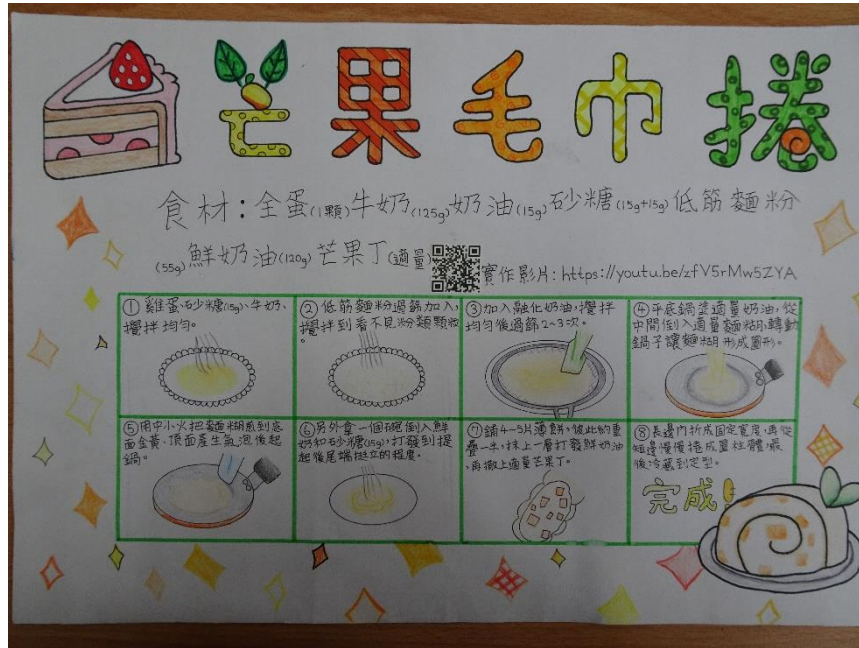 芒果毛巾捲
食材：全蛋(1顆)牛奶(125g)奶油(15g)砂糖(15g+15g)低筋麵粉
(55g)鮮奶油(120g)芒果丁(適量)
實作影片：https://youtu.be/zfV5rMw5ZYA
①雞蛋、砂糖(15g)、牛奶、
攪拌均勻。
②低筋麵粉過篩加入，
攪拌到看不見粉類顆粒
。
③加入融化奶油，攪拌
均勻後過篩2~3次。
④平底鍋塗適量奶油，從
中間倒入適量麵糊，轉動
鍋子讓麵糊形成圓形。
⑤用中小火把麵糊煎到底
面金黃、頂面產生氣泡後起
鍋。
⑥另外拿一個碗倒入鮮
奶和砂糖(15g)，打發到提
起後尾端挺立的程度。
⑦鋪4~5片薄餅，彼此約重
疊一半，抹上一層打發鮮奶油
，再撒上適量芒果丁。
⑧長邊內折成固定寬度，再從
短邊慢慢捲成圓柱體，最
後冷藏到定型。
完成！